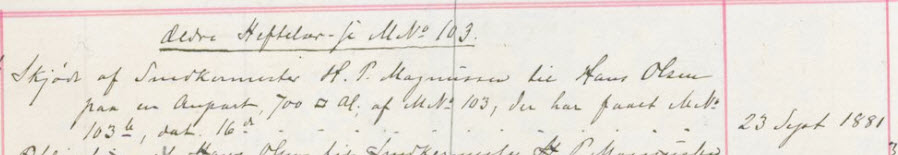 Ældre Heftelser se MNo 103.
Skjøde af Snedkermester H. P. Magnussen til Hans Olsen
paa en Anpart, 700 □ Al. af MNo 103, der har faaet MNo
103 b, dat. 16 d.
23 Sept 1881
Hans Olsen til Snedkermester H P Magnussen